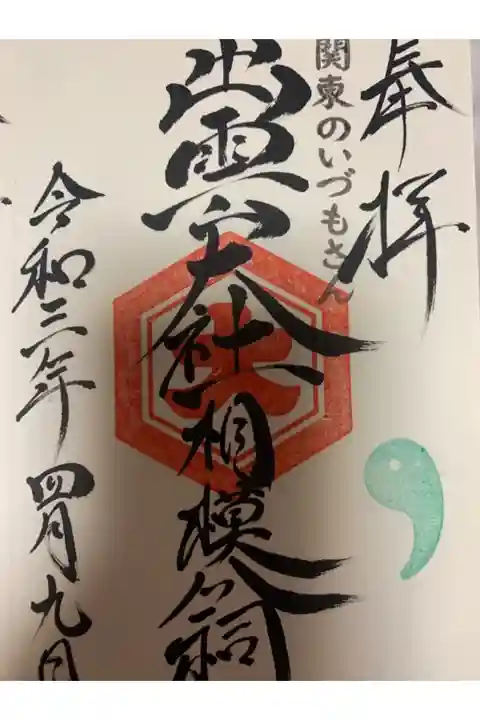 奉拝
関東のいづもさん
出雲大社相模分祠
大
令和三年 四月九日